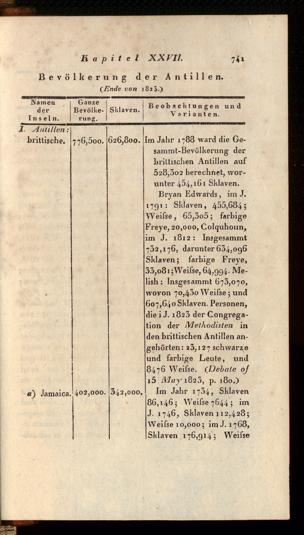 Kapitel XXVII. 741
Bevölkerung der Antillen.
(Ende von 1823.)
Namen der Inseln. Ganze Bevölke- rung. Sklaven. Beobachtungen und Varianten.
I. Antillen:
brittische. 776,500. 626,800. Im Jahr 1788 ward die Ge-
sammt-Bevölkerung der
brittischen Antillen auf
528,302 berechnet, wor-
unter 454,161 Sklaven.
Bryan Edwards, im J.
1791: Sklaven, 455,684;
Weiſse, 65,305; farbige
Freye, 20,000, Colquhoun,
im J. 1812: Insgesammt
732,176, darunter 634,096
Sklaven; farbige Freye,
33,081; Weiſse, 64,994. Me-
lish: Insgesammt 673,070,
wovon 70,430 Weiſse; und
607,640 Sklaven. Personen,
die i J. 1823 der Congrega-
tion der Methodisten in
den brittischen Antillen an-
gehörten: 23,127 schwarze
und farbige Leute, und
8476 Weiſse. (Debate of
15 May 1823, p. 180.)
a) Jamaica. 402,000. 342,000. Im Jahr 1734, Sklaven
86,146; Weiſse 7644; im
J. 1746, Sklaven 112,428;
Weiſse 10,000; im J. 1768,
Sklaven 176,914; Weiſse